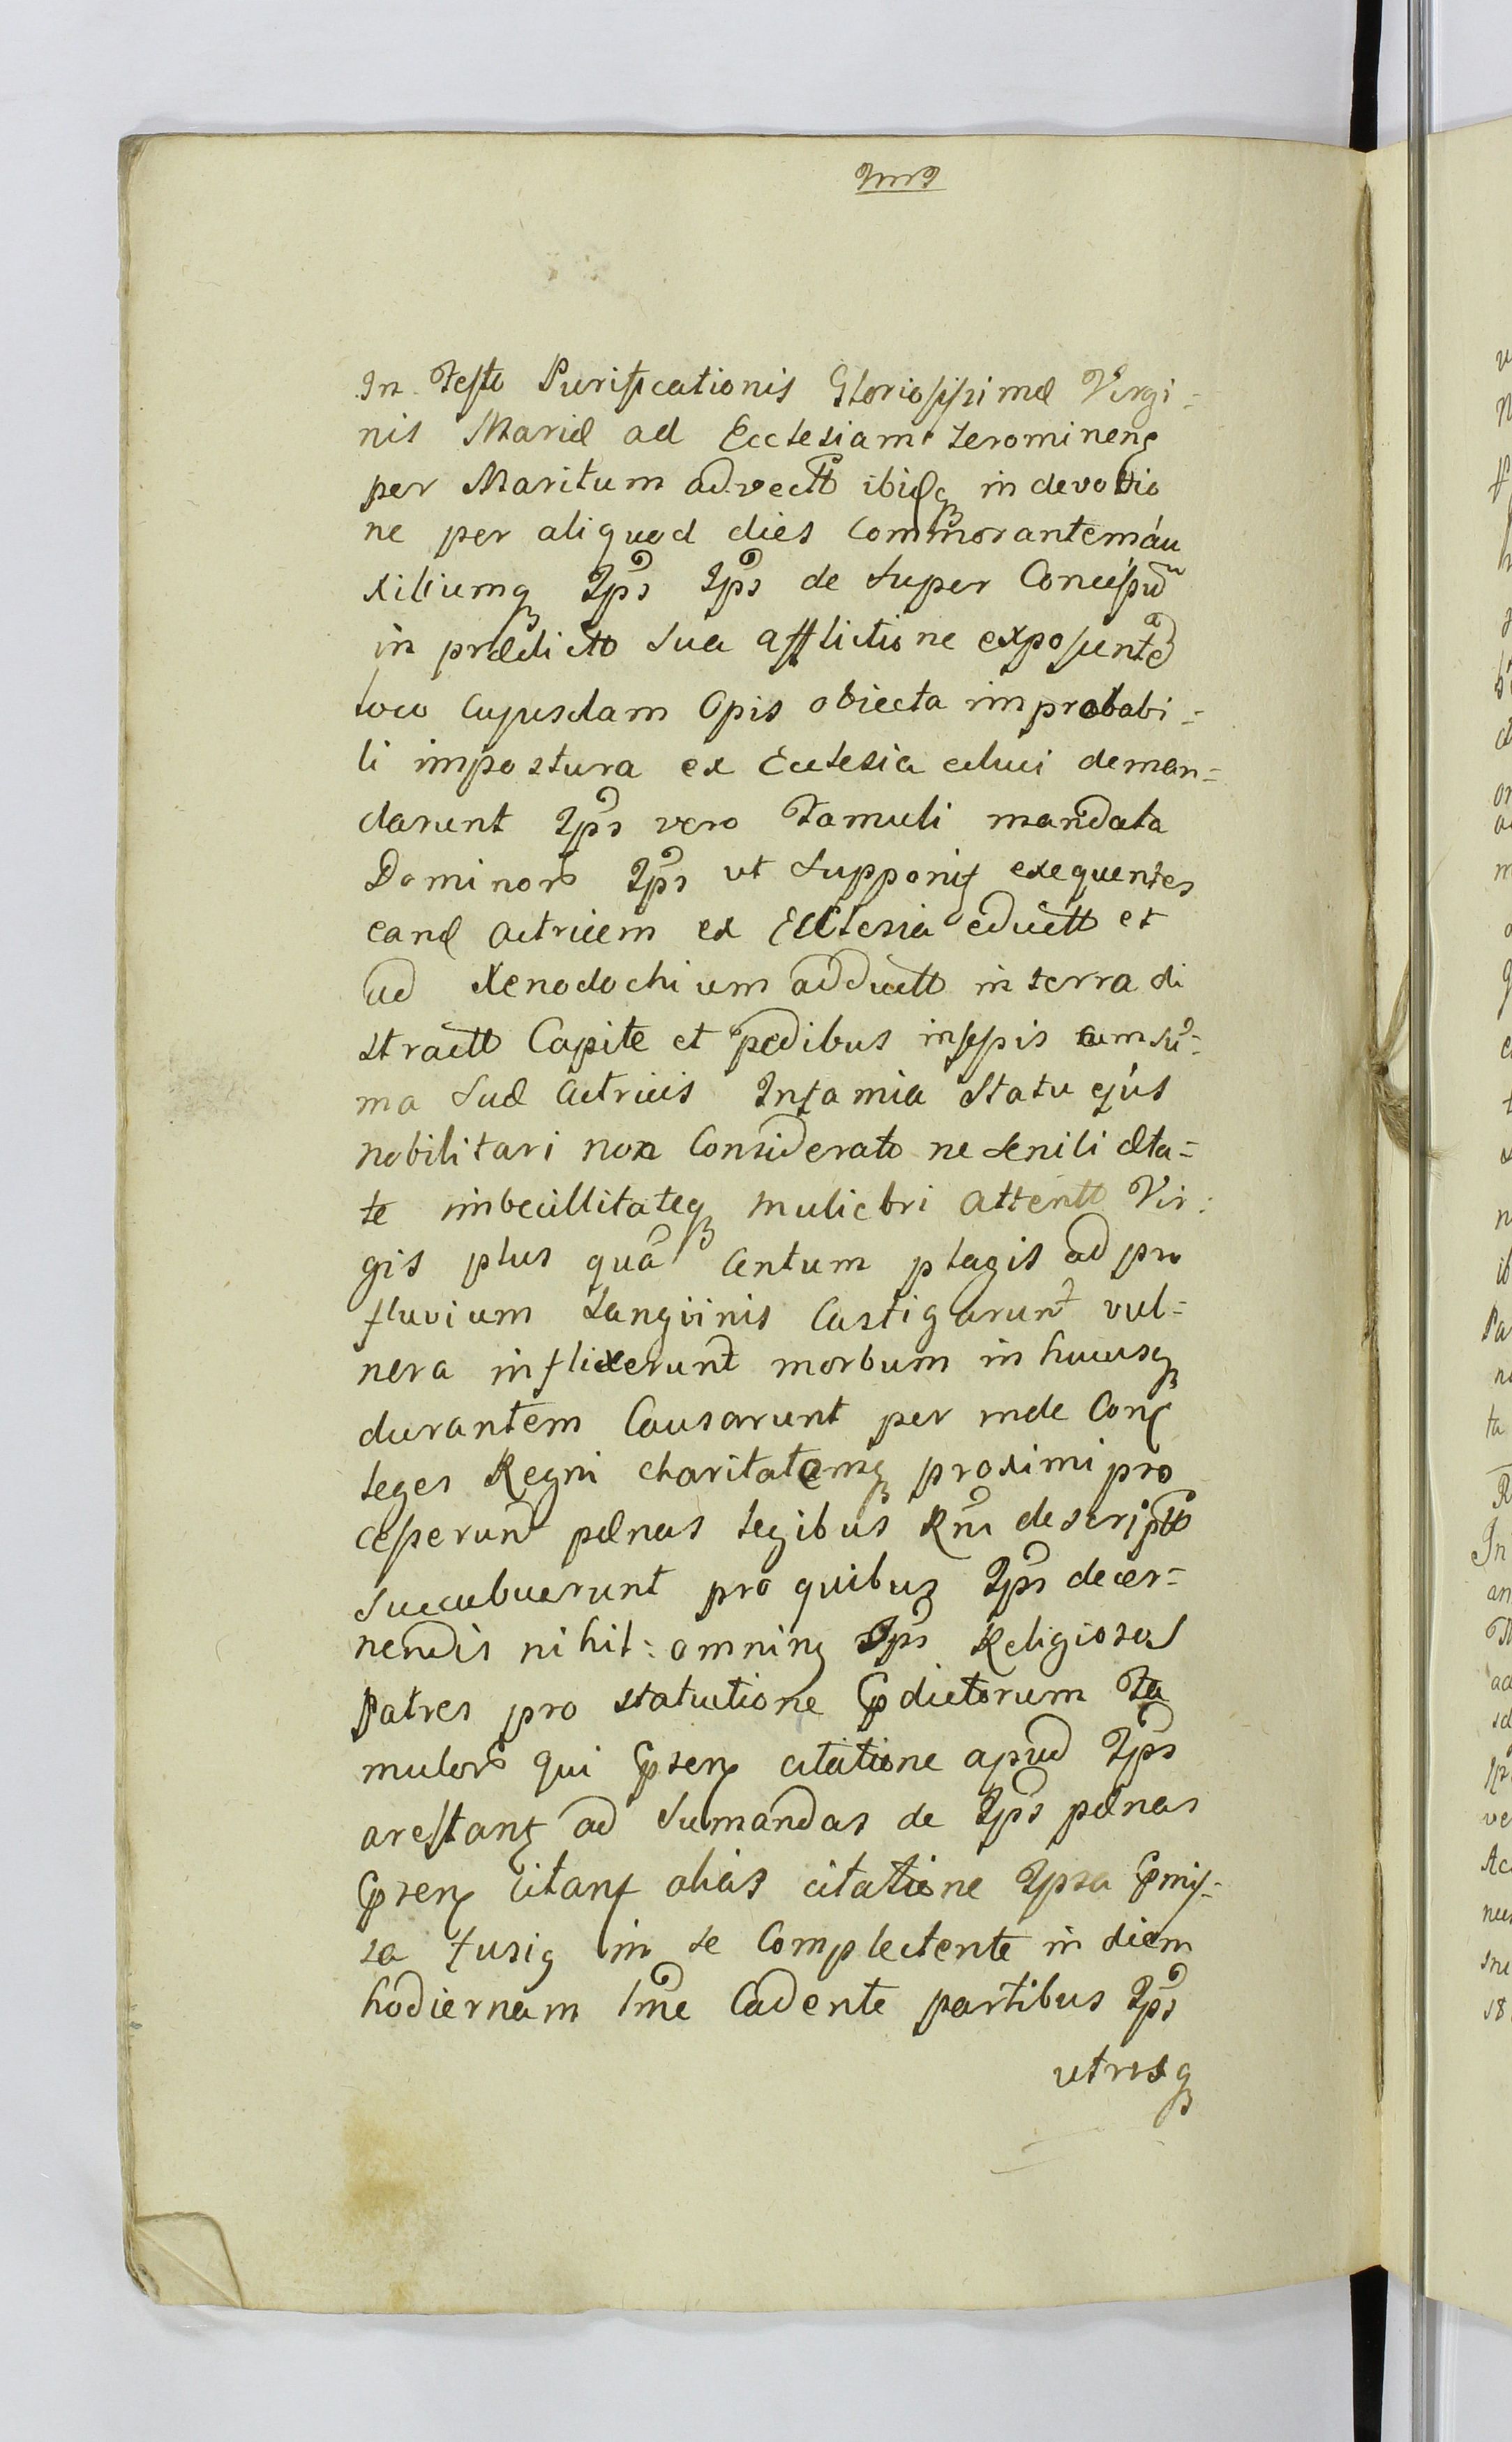 In Festo Purificationis Gloriosissimæ Virgi=
nis Mariæ ad Ecclesiam Zeromineng
per Maritum advectt ibidq in devotio
ne per aliquod dies Commorantem au
xiliumq Ips Ips de super
in prædicto sua afflictione exposuntê
loco Cujusdam Opis obiecta improbabi=
li impostura ex Ecclesia educi deman=
darunt Ips vero Famuli mandata
Dominor Ips ut supponiʃ exequentes
eand actricem ex Ecclesia eductt et
ad Xenodochium adductt in terra di
stractt Capite et pedibus insessis cum su=
ma suæ actricis Infamia Statu ejus
nobilitari non Considerato ne senili æta=
te imbecillitateq muliebri attentt Vir:
gis plus quã Centum plagis ad pro
fluvium Sangvinis Castigarunt vul=
nera inflixerunt morbum in hucusq
durantem Causarunt per inde Conʃ
leges Regni charitatemq proximi pro
cesserunt pænas legibus Rni descriptt
succubuerunt pro quibus Ips decer=
nendis nihil: omning Ips Religiosos
Patres pro statutione pdictorum Fa
mulor qui psenʃ citatione apud Ips
arestanʃ ad sumandas de Ips pænas
psenʃ Citanʃ alias citatione Ipsa pmiʃ=
sa fusig in se Complectente in diem
hodiernam Ime Cadente partibus Ips
utrisq